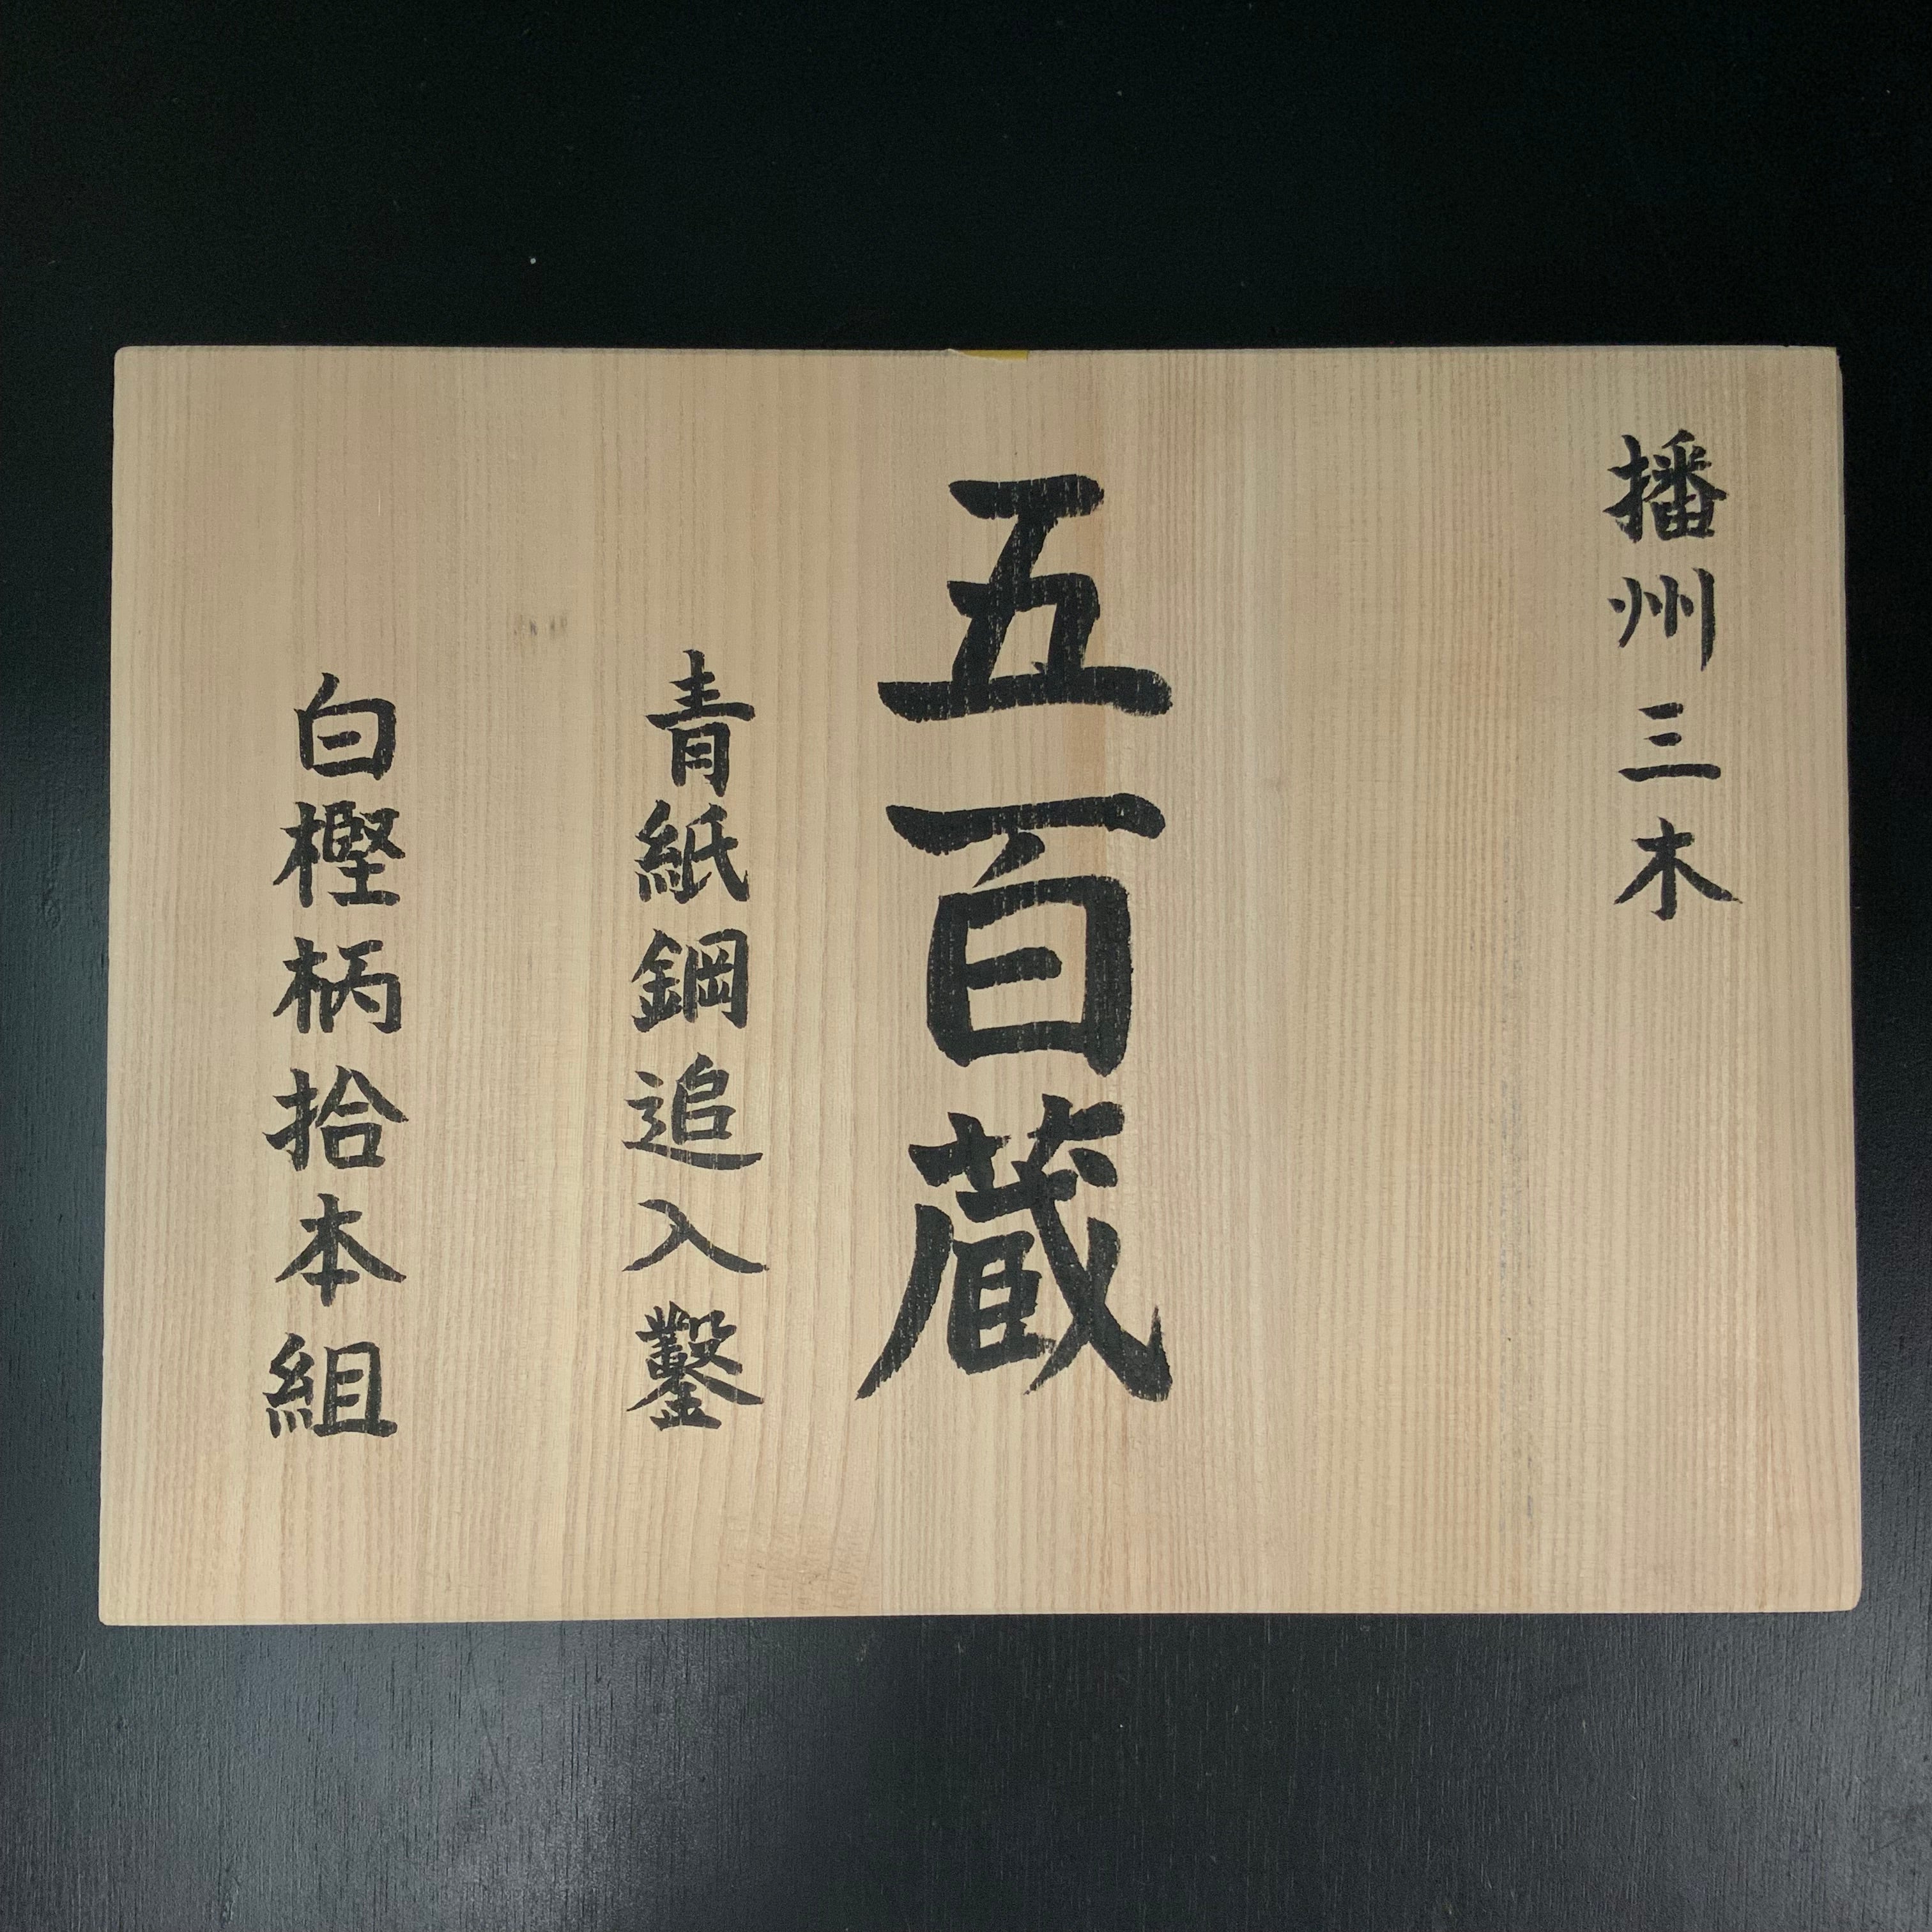 播州三木
五百蔵
青紙鋼追入鑿
白樫柄拾本組